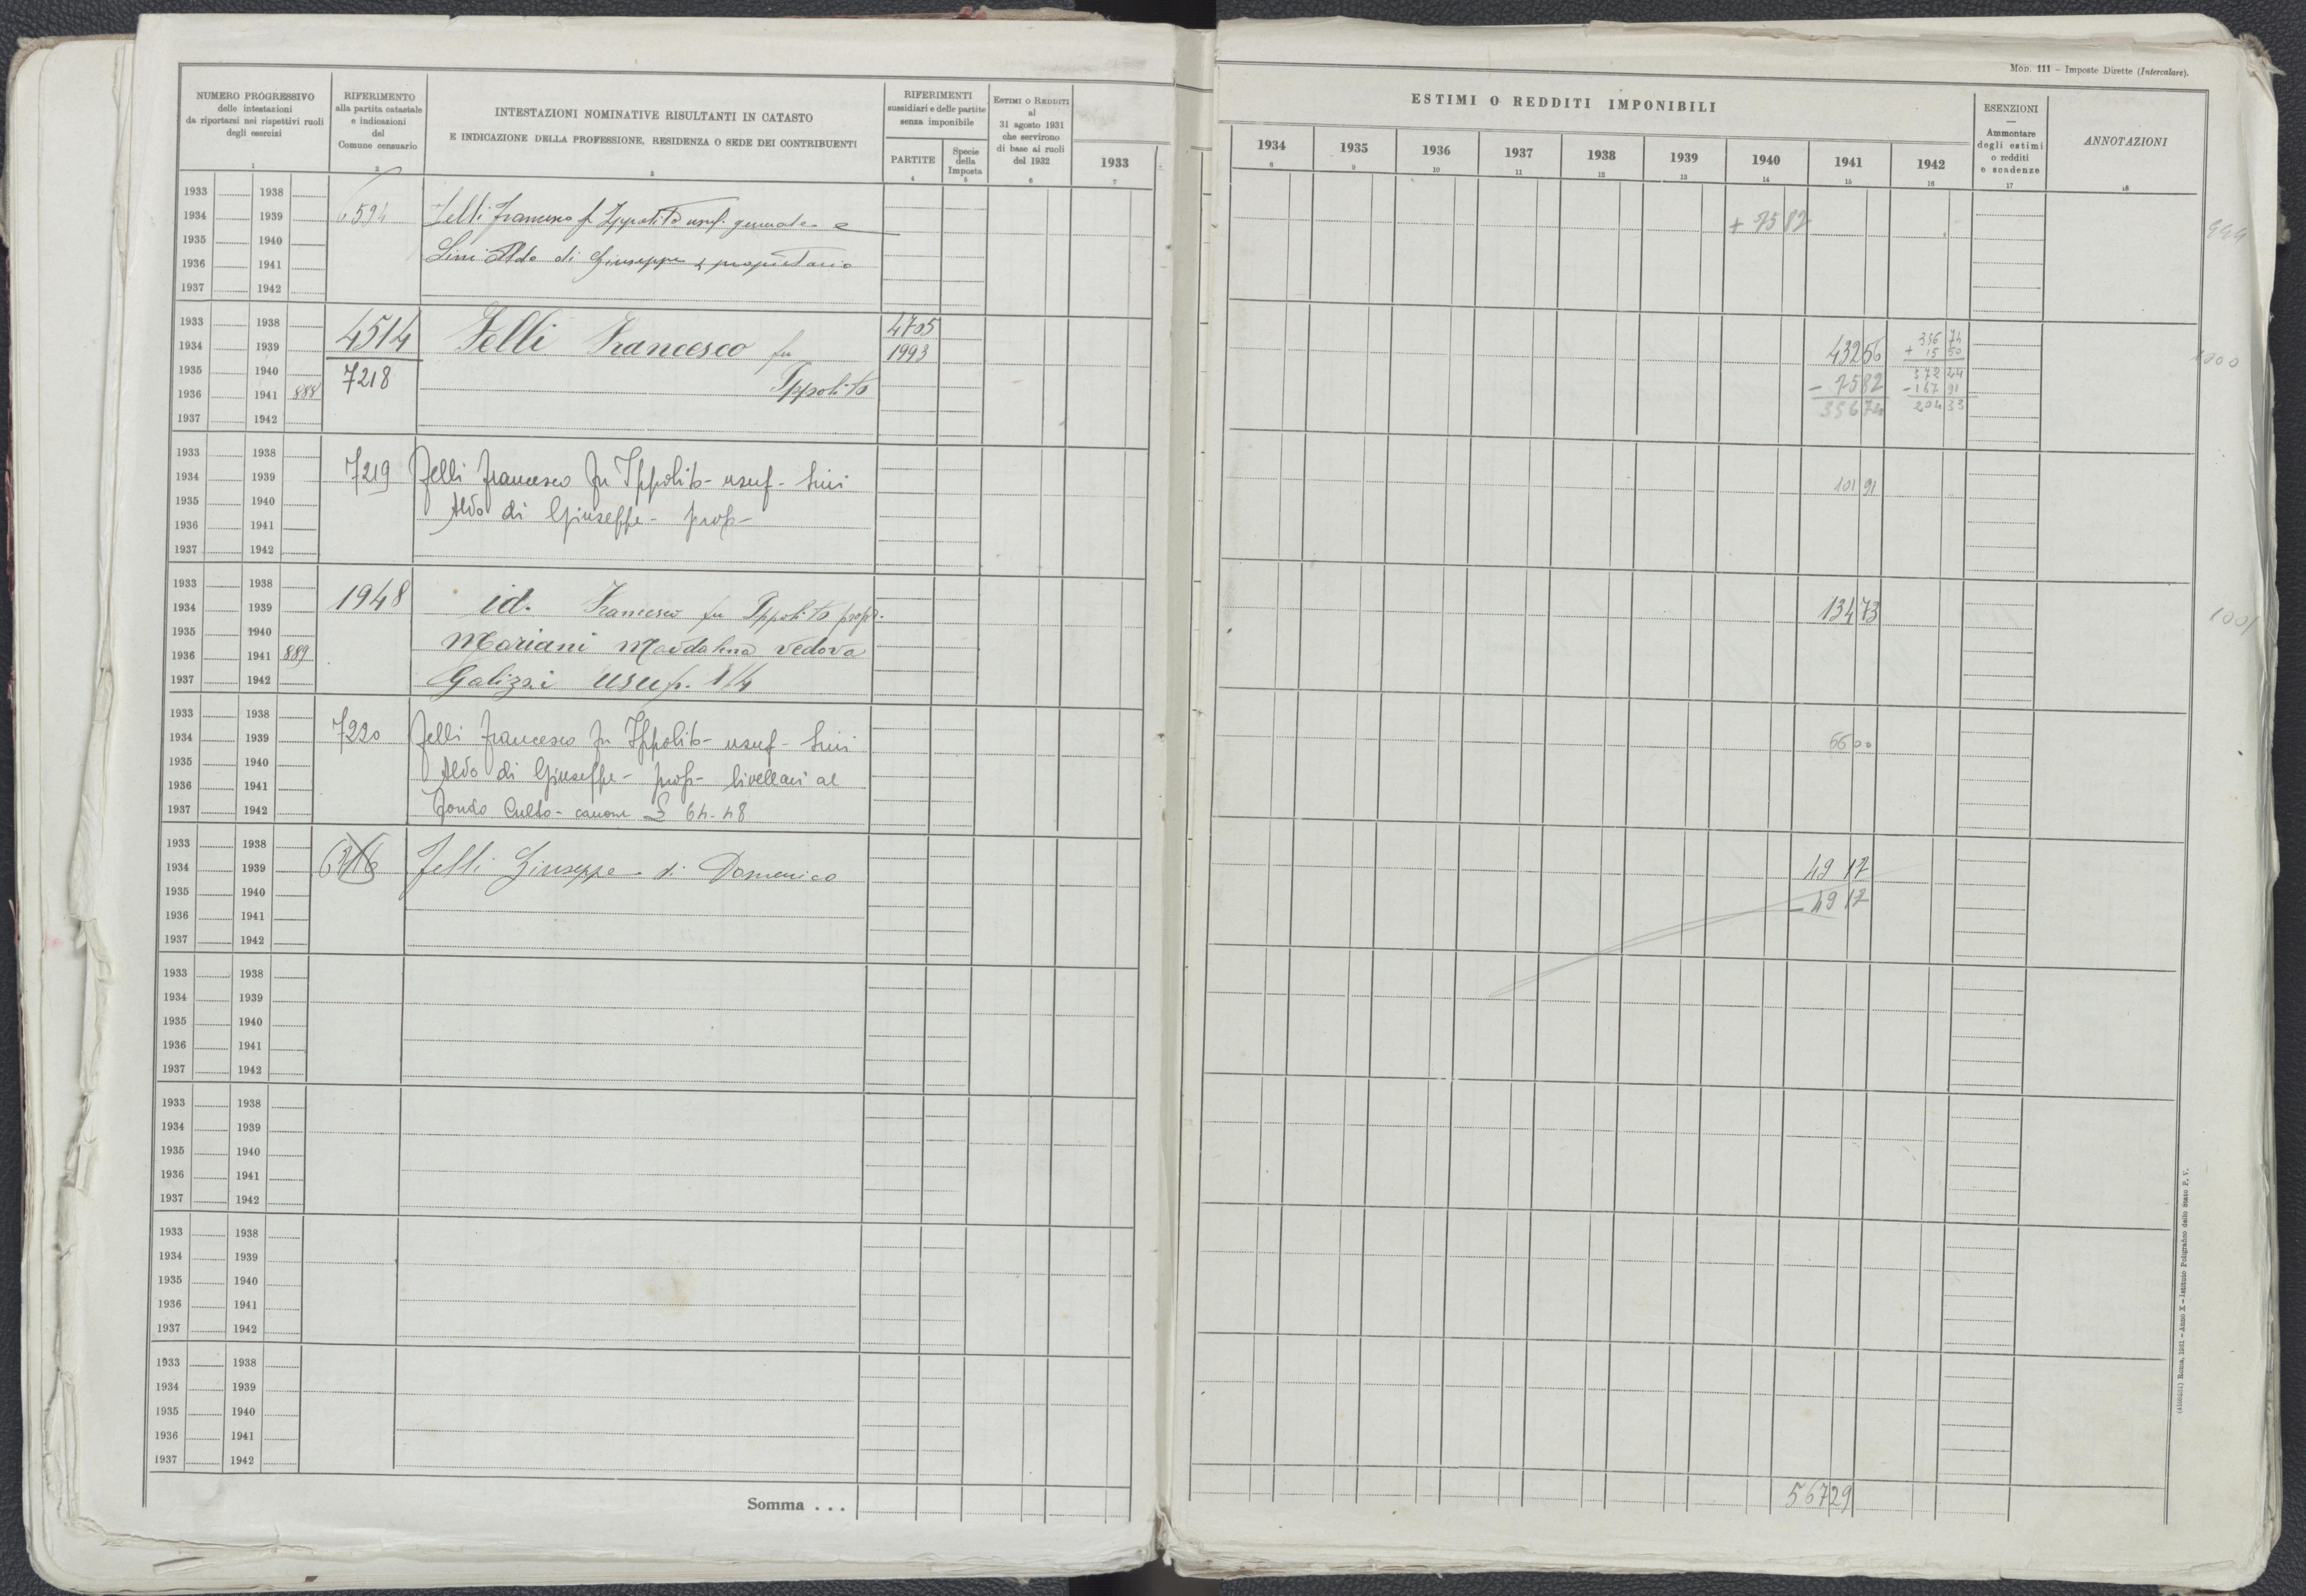 NUMERO PROGRESSIVO
delle intestazioni
da riportarsi nei rispettivi ruoli
degli esercizi
1
RIFERIMENTO
alla partita catastale
e indicazioni
del
Comune censuario
2
INTESTAZIONI NOMINATIVE RISULTANTI IN CATASTO
E INDICAZIONE DELLA PROFESSIONE, RESIDENZA O SEDE DEI CONTRIBUENTI
3
RIFERIMENTI
sussidiari e delle partite
senza imponibile
PARTITE
4
Specie
della
Imposta
5
ESTIMI O REDDITI
al
31 agosto 1931
che servirono
di base ai ruoli
del 1932
6
1933
7
MOD. 111 – Imposte Dirette (Intercalare).
ESTIMI O REDDITI IMPONIBILI
1934 1935 1936 1937 1938 1939 1940 1941 1942
8 9 10 11 12 13 14 15 16
ESENZIONI
—
Ammontare
degli estimi
o redditi
e scadenze
17
ANNOTAZIONI
18
1933 1938
1934 1939 6594 Felli Francesco f Ippolito usuf. generale e + 75 82 999
1935 1940
1936 1941 Lini Aldo di Giuseppe proprietario
1937 1942
1933 1938 4514 Felli Francesco fu 4705 336 74
1934 1939 1993 432 56 + 15 50 1000
1935 1940 7218 Ippolito - 75 82 372 24
1936 1941 888 - 167 91
1937 1942 356 74 204 33
1933 1938
1934 1939 7219 Felli Francesco fu Ippolito - usuf - Lini 101 91
1935 1940 Aldo di Giuseppe - prop -
1936 1941
1937 1942
1933 1938 1948 id. Francesco fu Ippolito propr. 134 73
1934 1939 1001
1935 1940 Mariani Maddalena vedova
1936 1941 889
1937 1942 Galizzi usuf. 1/4
1933 1938
1934 1939 7220 Felli Francesco fu Ippolito - usuf - Lini 66 00
1935 1940 Aldo di Giuseppe - prop - livellari al
1936 1941
1937 1942 Fondo Culto - canone £ 64-48
1933 1938
1934 1939 Felli Giuseppe di Domenico 49 17
1935 1940 - 49 17
1936 1941
1937 1942
1933 1938
1934 1939
1935 1940
1936 1941
1937 1942
1933 1938
1934 1939
1935 1940
1936 1941
1937 1942
1933 1938
1934 1939
1935 1940
1936 1941
1937 1942
1933 1938
1934 1939
1935 1940
1936 1941
1937 1942
Somma . . . 567 29
Roma, 1931 – Anno X – Istituto Poligrafico dello Stato P. V.